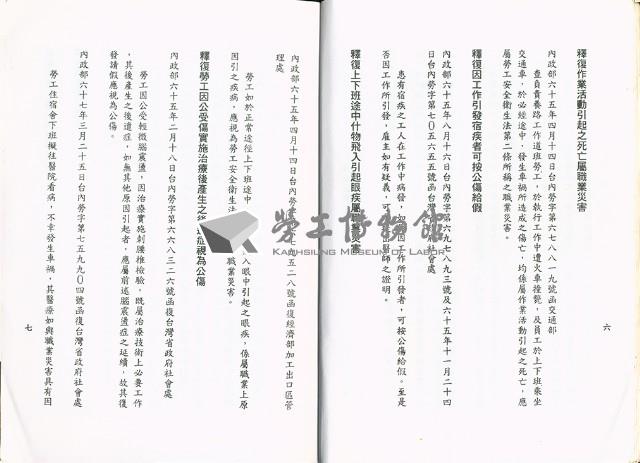 釋復作業活動引起之死亡屬職業災害
內政部六十五年四月十四日台內勞字第六七八八一九號函交通部
查員貴養路工作道班勞工，於執行工作中遭火車撞斃，及員工於上下班乘坐
交通車，於必經途中，發生車禍所造成之傷亡，均係屬作業活動引起之死亡，應
屬勞工安全衛生法第二條所稱之職業災害。
釋復因工作引發宿疾者可按公傷給假
內政部六十五年八月十六日台內勞字第六九七八九三號及六十五年十一月二十四
日台內勞字第七０五六五五號函台灣省政府社會處
患有宿疾之工人在工作中病發，如因工作所引發者，可按公傷給假。至是
否因工作所引發，雇主如有疑義，可出醫師之證明。
釋復上下班途中什物飛入引起眼疾屬職業災害
六
內政部六十五年四月十四日台內勞字第六七九五二八號函復經濟部加工出口區管
理處
勞工如於正常途徑上下班途中入眼中引起之眼疾，係屬職業上原
因引之疾病，應視為勞工安全衛生法職業災害。
釋復勞工因公受傷實施治療後產生之後遺症視為公傷
內政部六十五年二月十八日台內勞字第六六八三二六號函復台灣省政府社會處
勞工因公受輕微腦震盪，因治療實施刺腰椎檢驗。既屬治療技術上必要工作
，其後產生之後遺症，如無其他原因引起者，應屬前述腦震盪症之延續，故其復
發請假應視為公傷。
內政部六十七年三月二十五日台內勞字第七五九九０四號函復台灣省政府社會處
勞工住宿會下班擬往醫院看病，不幸發生車禍，其醫療如與職業災害具有因
七
勞工博物館
KAOHSIUNG MUSEUM OF LABOR